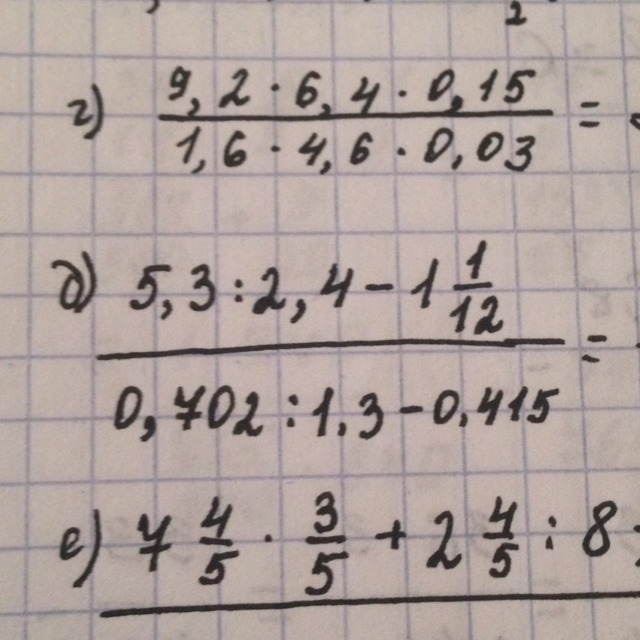 2
г) 9,2 · 6,4 · 0,15 =
1,6 · 4,6 · 0,03
д) 5,3 : 2,4 - 1 1/12 =
0,702 : 1,3 - 0,415
е) 7 4/5 · 3/5 + 2 4/5 : 8